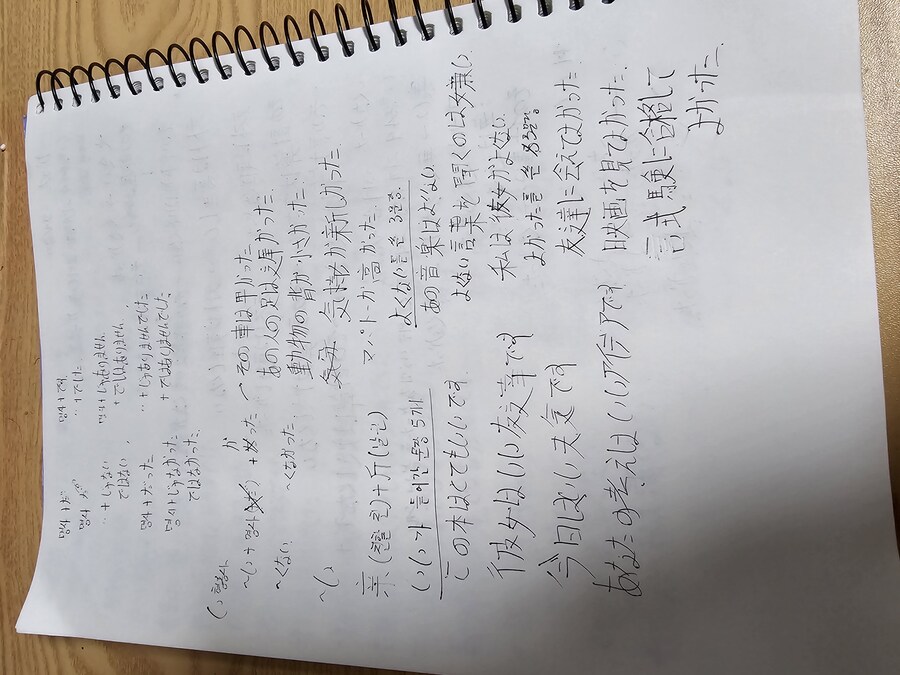 명사 + だ 명사 + です
명사 だ " + でした
" + じゃない 명사 + じゃありません
ではない + ではありません
명사 + だった " + じゃありませんでした
명사 + じゃなかった + ではありませんでした
ではなかった
い 형용사
~い + 명사 + かった → その事は早かった
~くない あの人の足は速かった
~くなかった 動物の背が小さかった
~い 気持が新しかった
亲 + 斤 マパトーが高かった
いい가 들어간 문장 5개 よくない를 쓴 3문장.
この本はとてもいいです あの音楽はよくない
彼女はいい友達です よくない言葉を聞くのは嫌い
今日はいい天気です 私は彼女がよくない
あなたの考えはいいアイデアです よかった를 쓴 3문장.
友達に会えてよかった
映画を見てよかった.
試験に合格して
よかった